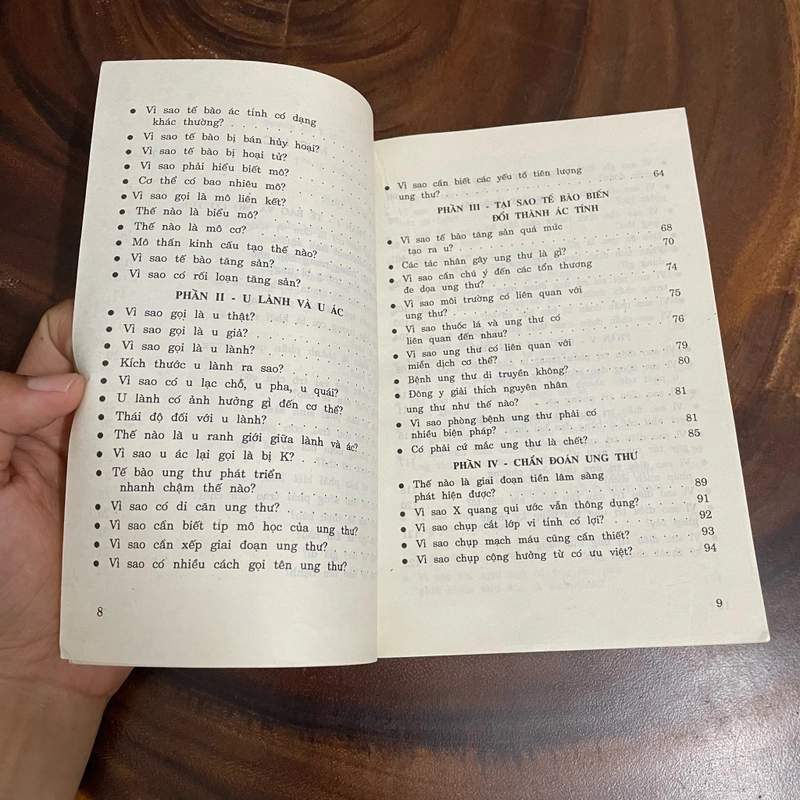 • Vì sao tế bào ác tính có dạng
khác thường? . . . . . . . . . . . .
• Vì sao tế bào bị bán hủy hoại? . . . .
• Vì sao tế bào bị hoại tử? . . . . . . .
• Vì sao phải hiểu biết mô? . . . . . . .
• Cơ thể có bao nhiêu mô? . . . . . . . .
• Vì sao gọi là mô liên kết? . . . . . . .
• Thế nào là biểu mô? . . . . . . . . . .
• Thế nào là mô cơ? . . . . . . . . . . .
• Mô thần kinh cấu tạo thế nào? . . . . .
• Vì sao tế bào tăng sản? . . . . . . . .
• Vì sao có rối loạn tăng sản? . . . . . .
PHẦN II - U LÀNH VÀ U ÁC
• Vì sao gọi là u thật? . . . . . . . . .
• Vì sao gọi là u giả? . . . . . . . . . .
• Vì sao gọi là u lành? . . . . . . . . .
• Kích thước u lành ra sao? . . . . . . .
• Vì sao có u lạc chỗ, u pha, u quái? . .
• U lành có ảnh hưởng gì đến cơ thể? . .
• Thái độ đối với u lành? . . . . . . . .
• Thế nào là u ranh giới giữa lành và ác?
• Vì sao u ác lại gọi là bị K? . . . . . .
• Tế bào ung thư phát triển
nhanh chậm thế nào? . . . . . . . . .
• Vì sao có di căn ung thư? . . . . . . .
• Vì sao cần biết típ mô học của ung thư?
• Vì sao cần xếp giai đoạn ung thư? . . .
• Vì sao có nhiều cách gọi tên ung thư? .
8
• Vì sao cần biết các yếu tố tiên lượng
ung thư? . . . . . . . . . . . . . . 64
PHẦN III - TẠI SAO TẾ BÀO BIẾN
ĐỔI THÀNH ÁC TÍNH
• Vì sao tế bào tăng sản quá mức
tạo ra u? . . . . . . . . . . . . . . 68
• Các tác nhân gây ung thư là gì? . . . . 70
• Vì sao cần chú ý đến các tổn thương
đe dọa ung thư? . . . . . . . . . . . 74
• Vì sao môi trường có liên quan với
ung thư? . . . . . . . . . . . . . . 75
• Vì sao thuốc lá và ung thư có
liên quan đến nhau? . . . . . . . . . 76
• Vì sao ung thư có liên quan với
miễn dịch cơ thể? . . . . . . . . . . 79
• Bệnh ung thư di truyền không? . . . . . 80
• Đông y giải thích nguyên nhân
ung thư như thế nào? . . . . . . . . . 81
• Vì sao phòng bệnh ung thư phải có
nhiều biện pháp? . . . . . . . . . . . 81
• Có phải cứ mắc ung thư là chết? . . . . 85
PHẦN IV - CHẨN ĐOÁN UNG THƯ
• Thế nào là giai đoạn tiền lâm sàng
phát hiện được? . . . . . . . . . . . 89
• Vì sao X quang qui ước vẫn thông dụng? . 91
• Vì sao chụp cắt lớp vi tính có lợi? . . . 92
• Vì sao chụp mạch máu cũng cần thiết? . . 93
• Vì sao chụp cộng hưởng từ có ưu việt? . . 94
9